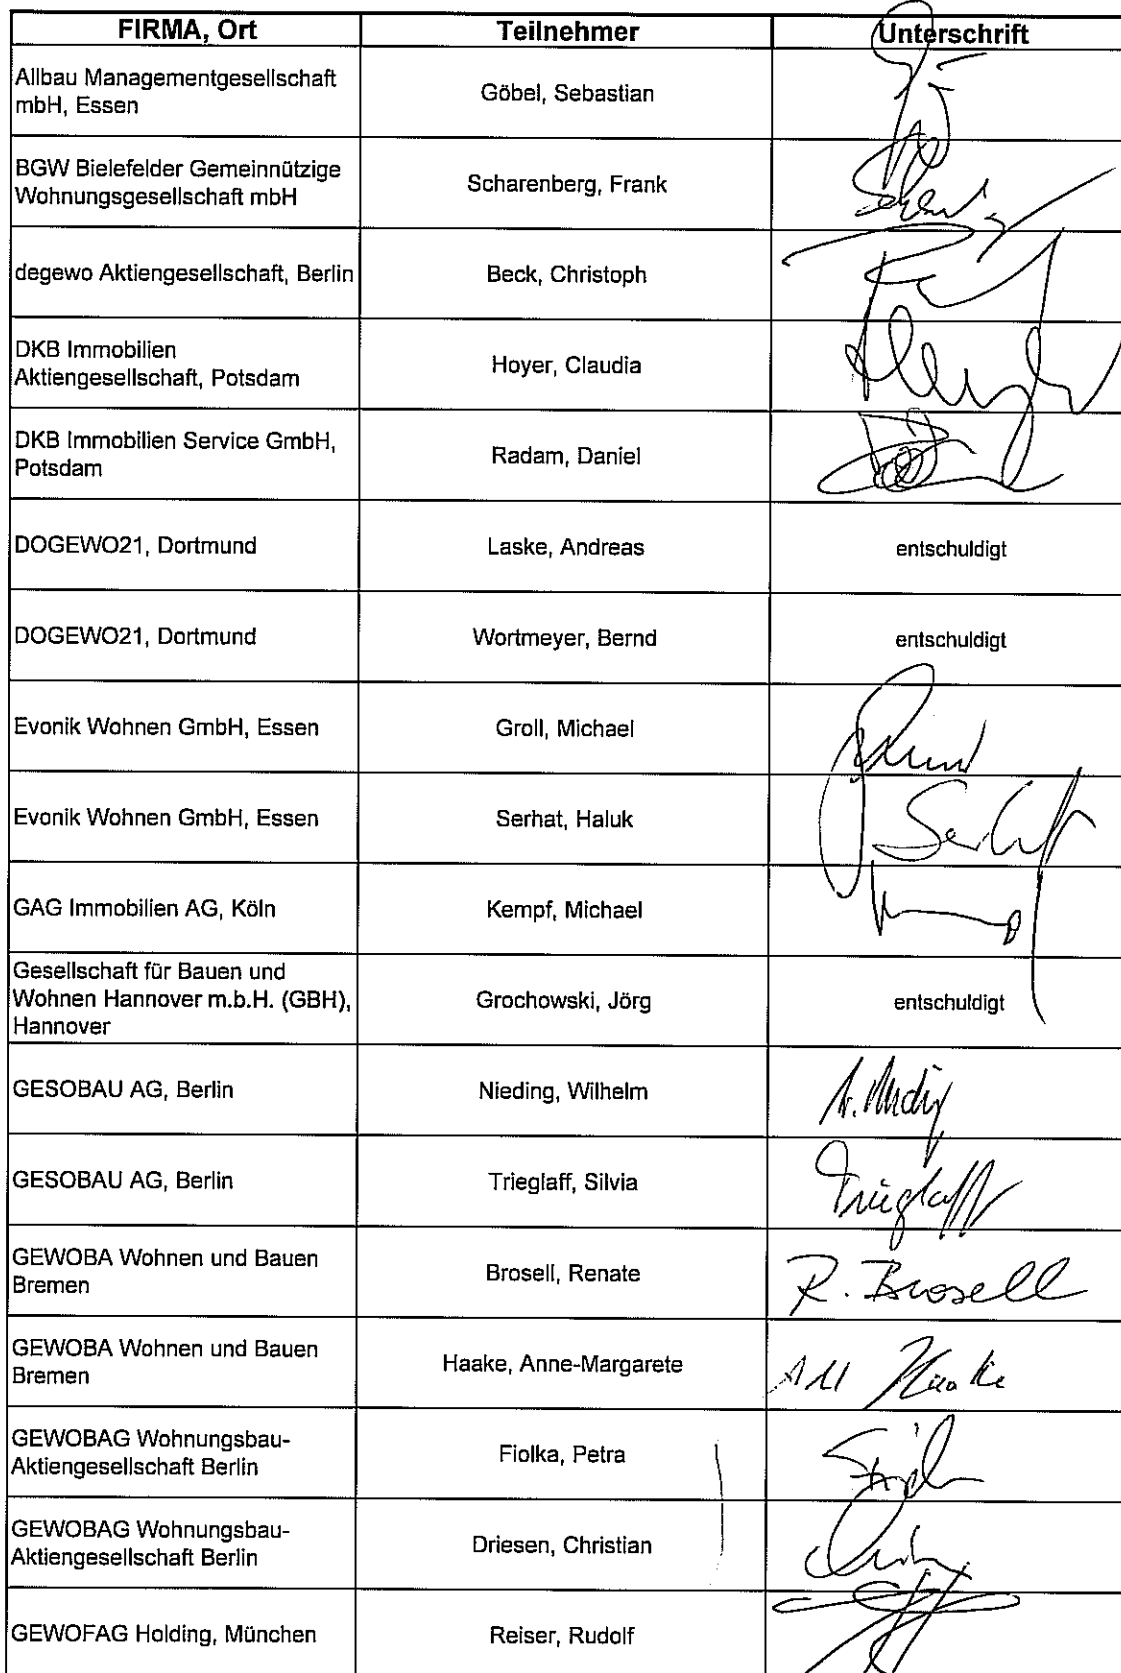 FIRMA, Ort Teilnehmer Unterschrift
Allbau Managementgesellschaft
mbH, Essen
Göbel, Sebastian
BGW Bielefelder Gemeinnützige
Wohnungsgesellschaft mbH
Scharenberg, Frank
degewo Aktiengesellschaft, Berlin Beck, Christoph
DKB Immobilien
Aktiengesellschaft, Potsdam
Hoyer, Claudia
DKB Immobilien Service GmbH,
Potsdam
Radam, Daniel
DOGEWO21, Dortmund Laske, Andreas entschuldigt
DOGEWO21, Dortmund Wortmeyer, Bernd entschuldigt
Evonik Wohnen GmbH, Essen Groll, Michael
Evonik Wohnen GmbH, Essen Serhat, Haluk
GAG Immobilien AG, Köln Kempf, Michael
Gesellschaft für Bauen und
Wohnen Hannover m.b.H. (GBH),
Hannover
Grochowski, Jörg entschuldigt
GESOBAU AG, Berlin Nieding, Wilhelm
GESOBAU AG, Berlin Trieglaff, Silvia Trieglaff
GEWOBA Wohnen und Bauen
Bremen
Brosell, Renate R. Brosell
GEWOBA Wohnen und Bauen
Bremen
Haake, Anne-Margarete AM Haake
GEWOBAG Wohnungsbau-
Aktiengesellschaft Berlin
Fiolka, Petra
GEWOBAG Wohnungsbau-
Aktiengesellschaft Berlin
Driesen, Christian
GEWOFAG Holding, München Reiser, Rudolf